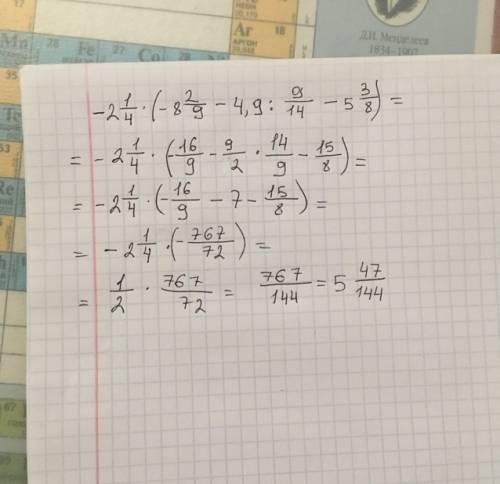 Mn
Fe
Co
НЕОН
Ar 18
АРГОН
Д.И. Менделеев
1834–1907
35
53
Re
67
-2 1/4 · (-8 2/9 - 4,9 : 9/14 - 5 3/8) =
= -2 1/4 · (16/9 - 9/2 · 14/9 - 15/8) =
= -2 1/4 · (-16/9 - 7 - 15/8) =
= -2 1/4 · (-767/72) =
= 1/2 · 767/72 = 767/144 = 5 47/144